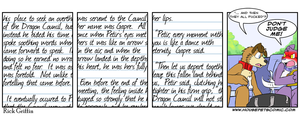 his place to seek an overeth
of the Dragon Council, but
instead he faded his time,
spoke soothing words when
came forward to speak. I
doing so he earned no wire
and felt no fear. It was as
was foretold. Not unlike t
foretelling that came before.
It eventually occured to F
was servant to the Council
her name was Espre. All
once when Peter's eyes met
hers it was like an arrow s
in the air, and when the
arrow landed in the depths
his heart, he was hers fully
Even before the end of
the meeting, the feeling inside
tugged so strongly that he
her lips.
"Peter, every moment with
you is like a dance with
eternity," Espre said.
"Then let us depart together
leave this fallen land behind
us," Peter said, clutching her
tighter in his firm grip, "the
Dragon Council will not st
... AND THEN
THEY ALL FLICKED?
DON'T
JUDGE
ME!
Rick Griffin
WWW.HOUSEPETSCOMIC.COM